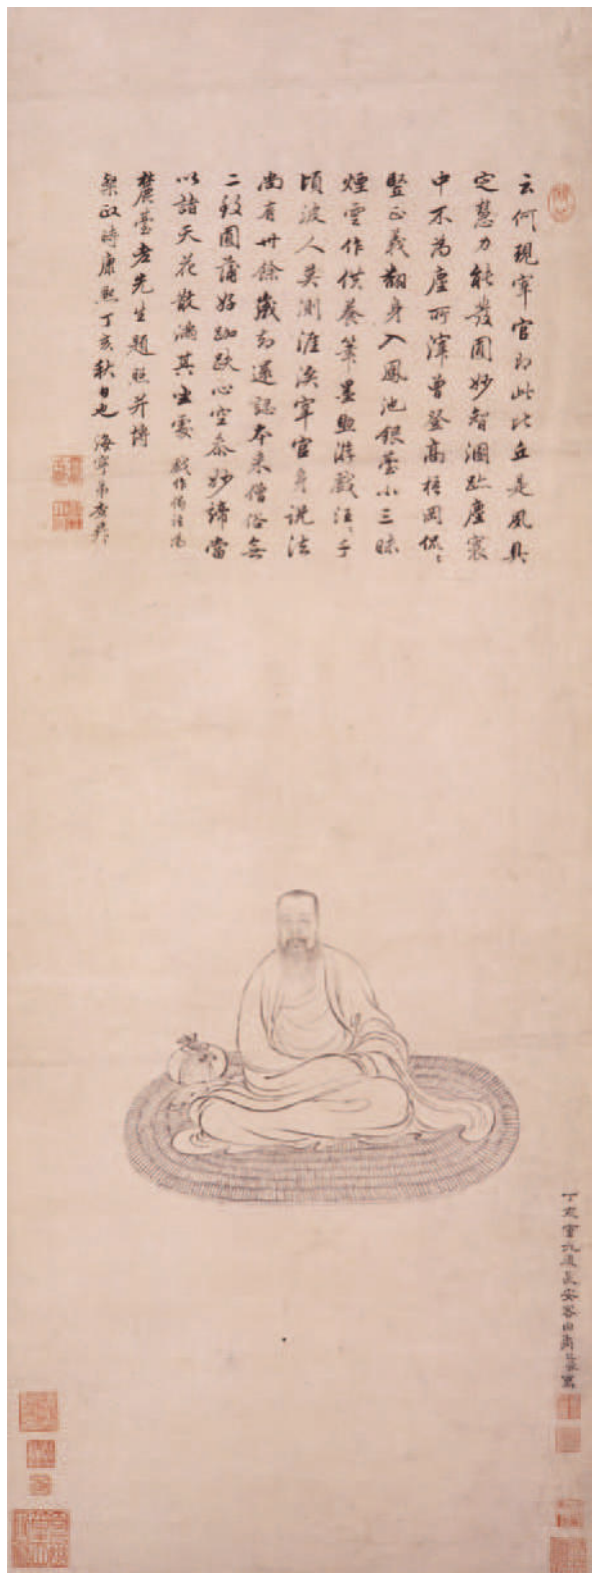 云何現宰官即此比丘是夙具
定慧力能發圓妙智溷跡塵寰
中不為塵所滓曾登高梧岡侃〻
豎正義翻身入鳳池銀臺小三昧
煙雲作供養筆墨與游戲汪〻千
頃波人莫測涯涘宰官身說法
尚有卅餘歲勿遽認本來僧俗無
二致團蒲好跏趺心空參妙諦當
以諸天花散滿其坐處 戲作偈語為
麓臺老先生題照并博
粲政時康熙丁亥秋日也 海寧弟查昇
丁亥長安